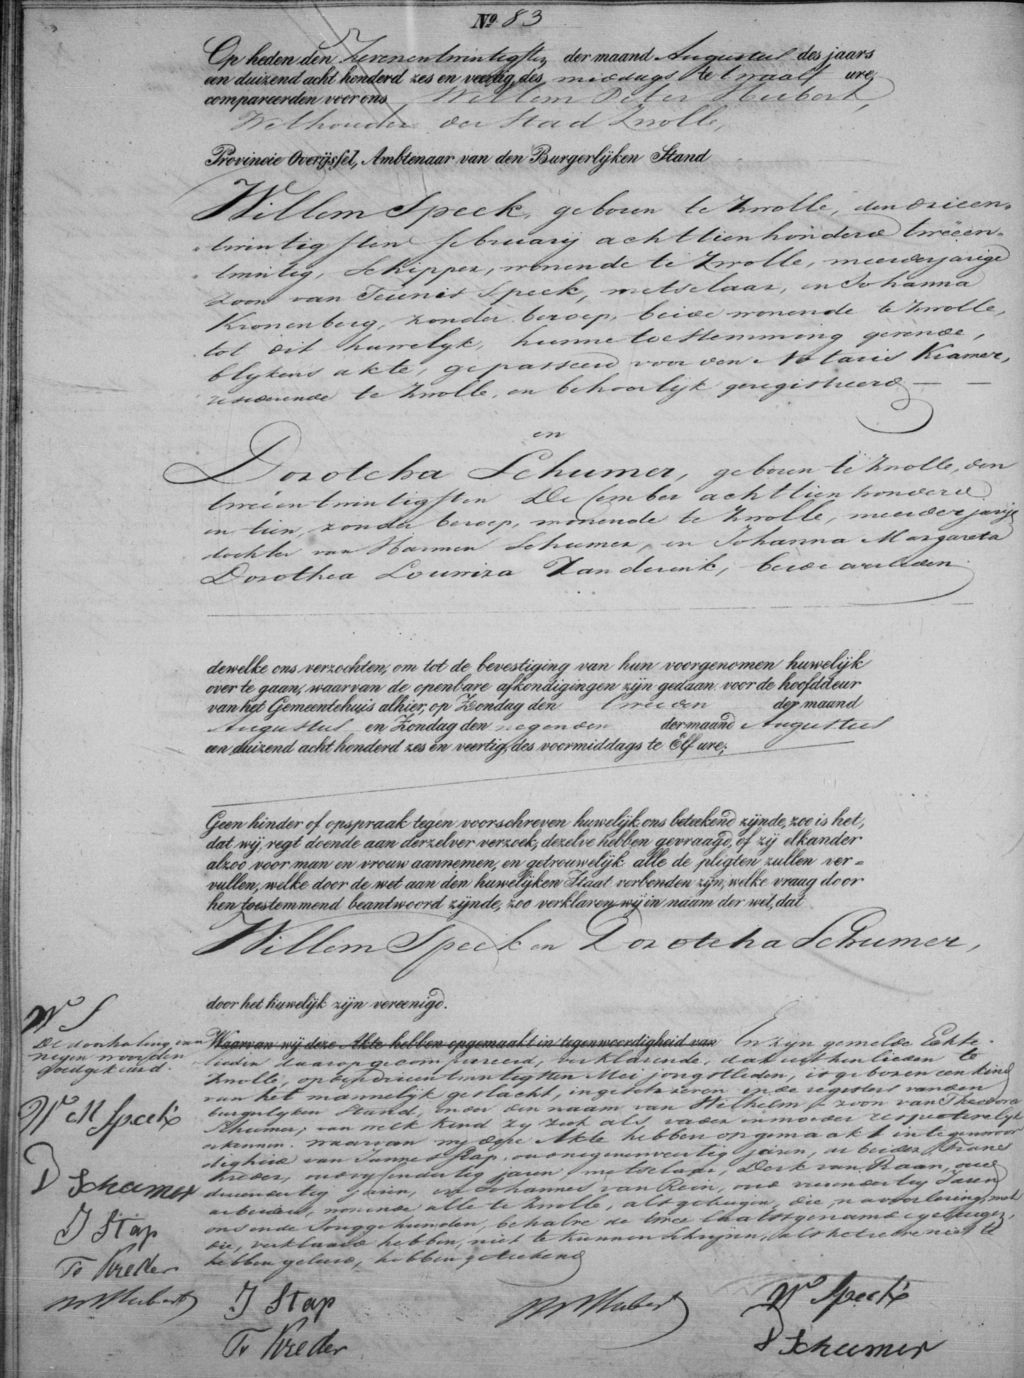 Nº 83
Op heden den Zevenentwintigsten der maand Augustus des jaars
een duizend acht honderd zes en veertig, des middags te twaalf ure,
compareerden voor ons, Willem Peter Hubert,
Wethouder der Stad Zwolle,
Provincie Overijssel, Ambtenaar van den Burgerlijken Stand
Willem Speek, geboren te Zwolle, den drieen-
twintigsten february achttienhonderd tweeen-
twintig, Schipper, wonende te Zwolle, meerderjarige
zoon van Teunis Speek, metselaar, en Johanna
Kronenberg, zonder beroep, beide wonende te Zwolle,
tot dit huwelyk hunne toestemming gevende,
blykens akte, gepasseerd voor den Notaris Kramer,
residerende te Zwolle, en behoorlyk geregistreerd
en
Dorothea Schumer, geboren te Zwolle, den
tweeentwintigsten December achttienhonderd
en tien, zonder beroep, wonende te Zwolle, meerderjarige
dochter van Harmen Schumer, en Johanna Margareta
Dorothea Louwiza, beide overleden.
dewelke ons verzochten, om tot de bevestiging van hun voorgenomen huwelijk
over te gaan, waarvan de openbare afkondigingen zijn gedaan voor de hoofddeur
van het Gemeentehuis alhier, op Zondag den tweeden der maand
Augustus en Zondag den negenden der maand Augustus
een duizend acht honderd zes en veertig, des voormiddags te Elf ure;
Geen hinder of opspraak tegen voorschreven huwelijk ons beteekend zijnde, zoo is het,
dat wij, regt doende aan derzelver verzoek, dezelve hebben gevraagd, of zij elkander
alzoo voor man en vrouw aannemen, en getrouwelijk alle de pligten zullen ver=
vullen, welke door de wet aan den huwelijken Staat verbonden zijn, welke vraag door
hen toestemmend beantwoord zijnde, zoo verklaren wij in naam der wet, dat
Willem Speek en Dorothea Schumer,
door het huwelijk zijn vereenigd.
Waarvan wij deze Akte hebben opgemaakt in tegenwoordigheid van En zyn gemelde Echte-
lieden daarop gecompareerd, verklarende, dat uit hen lieden te
Zwolle, op den drieentwintigsten Mei jongstleden, is geboren een kind
van het mannelyk geslacht, ingeschreven in de registers van den
burgerlyken Stand, onder den naam van Wilhelm, zoon van Theodora
Schumer, van welk kind zy zich als vader en moeder respectievelyk
erkennen. waarvan wy deze Akte hebben opgemaakt in tegenwoor
digheid van Stap, oud negenenveertig jaren, arbeider,
Kreder, jaren, metselaar, Derk van Raan, oud
jaren, en Johannes van Rein, oud jaren
arbeider, wonende alle te Zwolle, als getuigen, die na voorlezing met
ons en de Jonggehuwden, behalve de twee laatstgenoemde getuigen,
die, verklaard hebben, niet te kunnen schryven, als hetzelve niet te
hebben geleerd, hebben geteekend
W S
De doorhaling van
negen woorden
goedgekeurd.
W Speek
D Schumer
J Stap
Kreder
Hubert
J Stap
Kreder
Hubert
W Speek
D Schumer